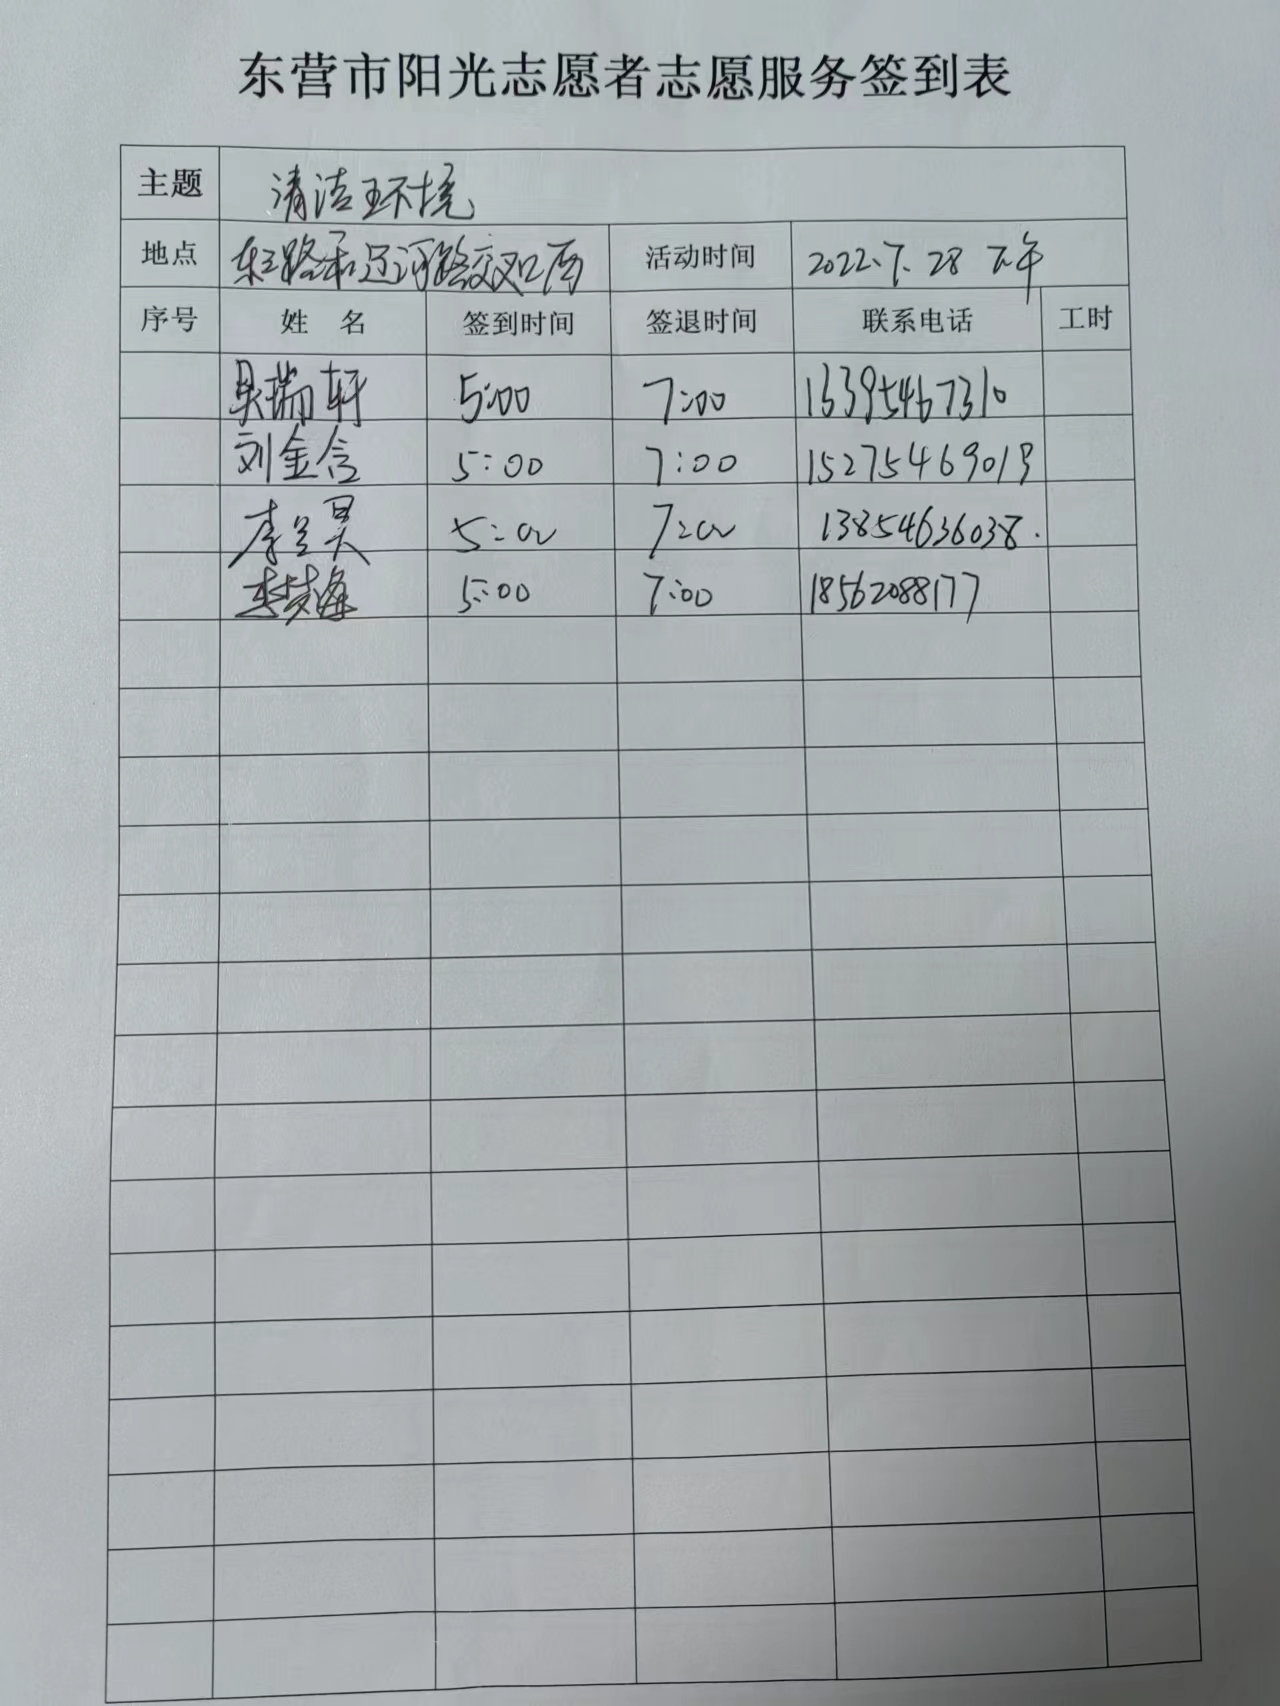 东营市阳光志愿者志愿服务签到表
主题 清洁环境
地点 东三路和辽河路交叉口南 活动时间 2022.7.28 下午
序号 姓 名 签到时间 签退时间 联系电话 工时
吴瑞轩 5:00 7:00 13395467310
刘金含 5:00 7:00 15275469019
李兰昊 5:00 7:00 13854636038.
5:00 7:00 18562088177